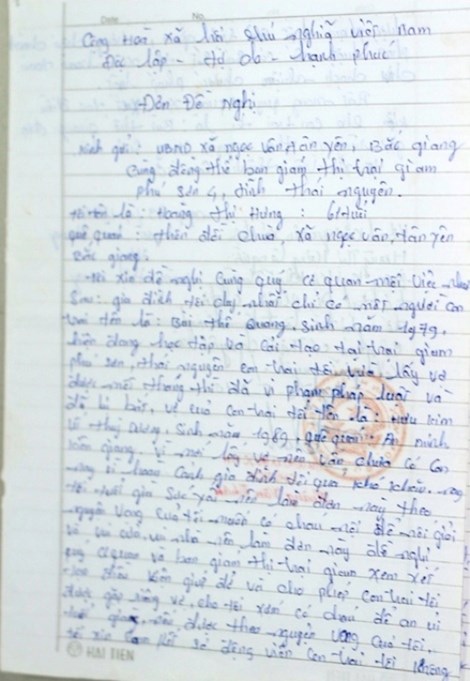 Date No.
Cộng hoà xã hội chủ nghĩa việt nam
Độc lập - tự do - hạnh phúc
Đơn Đề nghị
kính gửi: UBND xã ngọc vân, tân yên, Bắc giang
Cùng đồng thể ban giám thị trại giam
phú sơn 4, tỉnh thái nguyên.
tôi tên là: Hoàng thị Hưng: 61 tuổi
quê quán: thôn đồi chùa, xã ngọc vân, tân yên
Bắc giang.
tôi xin đề nghị cùng quý cơ quan một việc như
Sau: gia đình tôi duy nhất chỉ có một người con
trai tên là: Bùi thế Quang, sinh năm 1979.
hiện đang học tập và cải tạo tại trại giam
phú sơn, thái nguyên con trai tôi vừa lấy vợ
được một tháng thì đã vi phạm pháp luật và
đã bị bắt, vợ của con trai tôi tên là: kim
thuỳ Dương, Sinh năm 1989, quê quán: An minh
kiên giang. vì mới lấy vợ nên vẫn chưa có Con
này vì hoàn cảnh gia đình tôi quá khó khăn. nay
tôi tuổi già sức yếu nên làm đơn này theo
nguyện vọng của tôi muốn có cháu nội để nối giỏi
nên làm đơn này đề nghị
quý cơ quan và ban giám thị trại giam xem xét
tạo điều kiện giúp đỡ và cho phép con trai tôi
được gặp riêng vợ, cho tôi sớm có cháu để an ủi
tuổi già, được theo nguyện vọng của tôi.
tôi xin cam kết sẽ động viên con trai tôi không
HẢI TIẾN